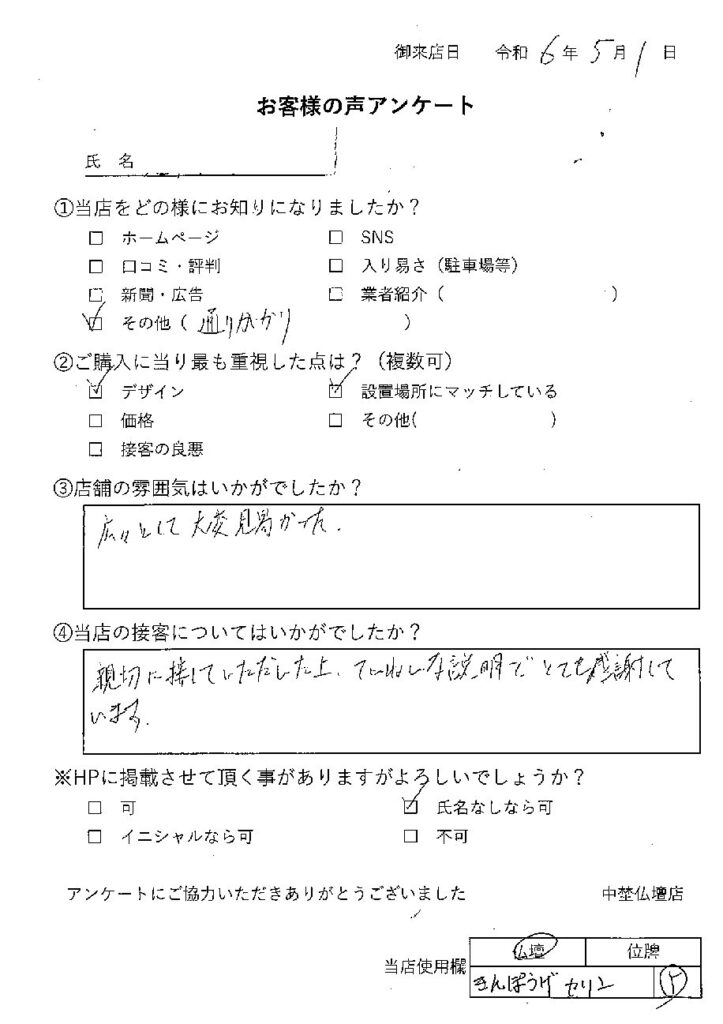 御来店日 令和 6年 5月 1日
お客様の声アンケート
氏 名
①当店をどの様にお知りになりましたか？
□ ホームページ □ SNS
□ 口コミ・評判 □ 入り易さ（駐車場等）
□ 新聞・広告 □ 業者紹介（ ）
☑ その他（通りがかり ）
②ご購入に当り最も重視した点は？（複数可）
☑ デザイン ☑ 設置場所にマッチしている
□ 価格 □ その他( )
□ 接客の良悪
③店舗の雰囲気はいかがでしたか？
広々として大変見易かった.
④当店の接客についてはいかがでしたか？
親切に接していただいた上、ていねいな説明でとても感謝して
います.
※HPに掲載させて頂く事がありますがよろしいでしょうか？
□ 可 ☑ 氏名なしなら可
□ イニシャルなら可 □ 不可
アンケートにご協力いただきありがとうございました 中埜仏壇店
当店使用欄 仏壇 位牌
きんぽうげ セリン